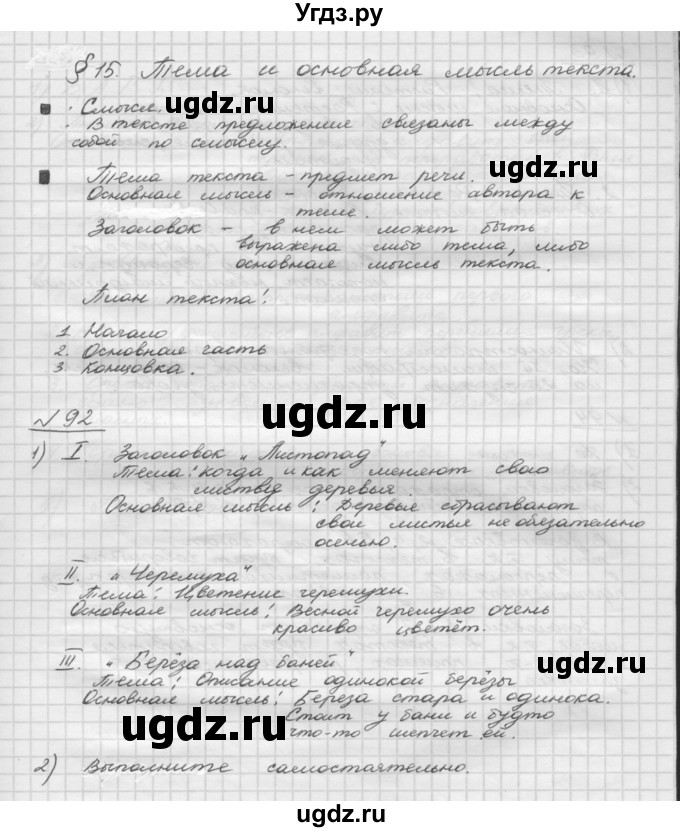 Угдз.ру
§ 15. Тема и основная мысль текста.
· Смысл.
· В тексте предложения связаны между
собой по смыслу.
Тема текста - предмет речи.
Основная мысль - отношение автора к
теме.
Заголовок - в нем может быть
выражена либо тема, либо
основная мысль текста.
План текста:
1. Начало
2. Основная часть
3. Концовка.
№ 92
1) I. Заголовок „Листопад"
Тема: когда и как меняют свою
листву деревья.
Основная мысль: Деревья сбрасывают
свои листья не обязательно
осенью.
II. „Черемуха"
Тема: Цветение черемухи.
Основная мысль: Весной черемухо очень
красиво цветёт.
III. „Берёза над баней"
Тема: Описание одинокой берёзы
Основная мысль: Береза стара и одинока.
Стоит у бани и будто
что-то шепчет ей.
2) Выполните самостоятельно.
ugdz.ru
ugdz.ru
ugdz.ru
ugdz.ru
ugdz.ru
ugdz.ru
ugdz.ru
ugdz.ru